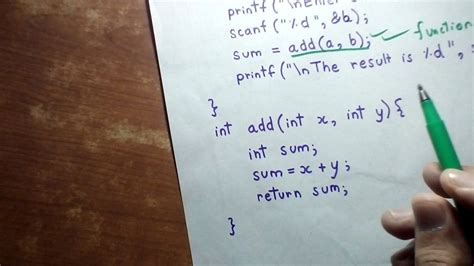 printf("\nEnter
scanf("%d", &b);
sum = add(a, b); function
printf("\nThe result is %d",
}
int add(int x, int y){
int sum;
sum = x + y;
return sum;
}